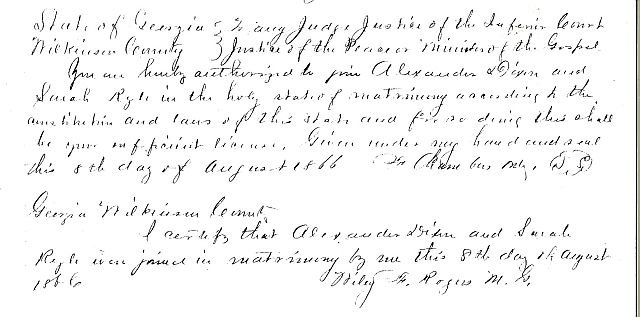 State of Georgia } To any Judge Justice of the Inferior Court
Wilkinson County } Justice of the Peace or Minister of the Gospel
You are hereby authorized to join Alexander Dixon and
Sarah Ryle in the holy state of matrimony according to the
constitution and laws of this state and for so doing this shall
be your sufficient license. Given under my hand and seal
this 8th day of August 1866
Georgia Wilkinson County
I certify that Alexander Dixon and Sarah
Ryle were joined in matrimony by me this 8th day of August
1866 Wiley F. Rogers M. G.